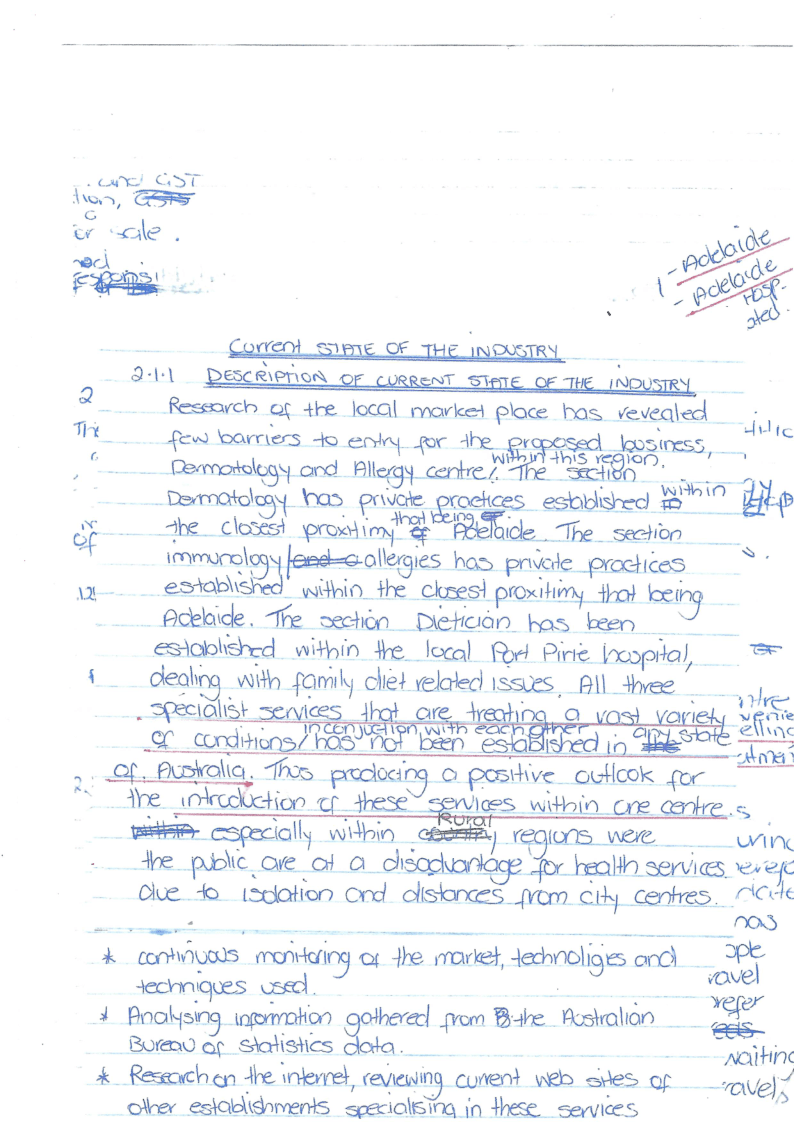 and GST
tion, GSTS
or sale.
responsi
1 - Adelaide
- Adelaide
Hosp-
Current STATE OF THE INDUSTRY
2.1.1 DESCRIPTION OF CURRENT STATE OF THE INDUSTRY
Research of the local market place has revealed
few barriers to entry for the proposed business,
within this region.
Dermatology and Allergy centre/. The section
Dermatology has private practices established in within
the closest proxtimy of that being Adelaide. The section
immunology/and a allergies has private practices
established within the closest proxitimy that being
Adelaide. The section Dietician has been
established within the local Port Pirie hospital,
dealing with family diet related issues. All three
specialist services that are treating a vast variety
in conjuction with each other
of conditions/has not been established in the any state
of Australia. Thus producing a positive outlook for
the introduction of these services within one centre.
within especially within country Rural regions were
the public are at a disadvantage for health services
due to isolation and distances from city centres.
* continuous monitoring of the market, technoligies and
techniques used.
* Analysing information gathered from B the Australian
Bureau of Statistics data.
* Research on the internet, reviewing current web sites of
other establishments specialising in these services